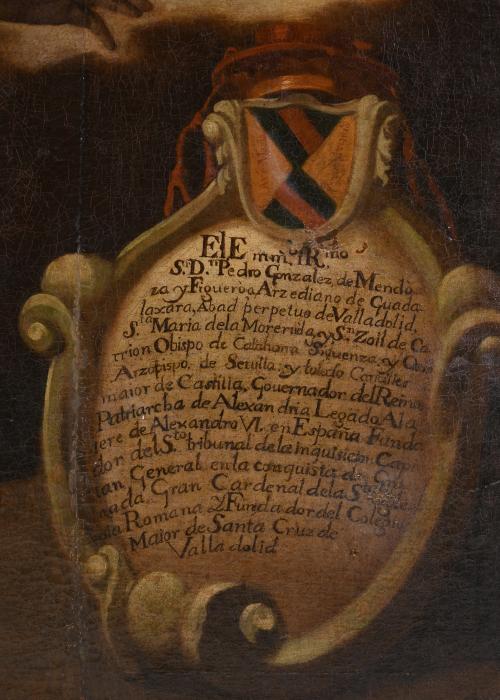 El Emm.º i R.mo
S.r D.n Pedro Gonzalez, de Mendo
za y Figueroa, Arzediano de Guada
laxara, Abad perpetuo de Valladolid,
S.ta Maria de la Moreruela, y S.n Zoil de Ca
rrion Obispo de Calahorra Siguenza, y
Arzobispo, de Sevilla, y toledo Canciller
maior de Castilla, Governador del Reino
Patriarcha de Alexandria Legado Ala
tere de Alexandro VI. en España Funda
dor del S.to tribunal de la inquisicion Capi
tan General en la conquista de Gra
nada Gran Cardenal de la S.ta
sola Romana y Fundador del Colegio
Maior de Santa Cruz de
Valladolid